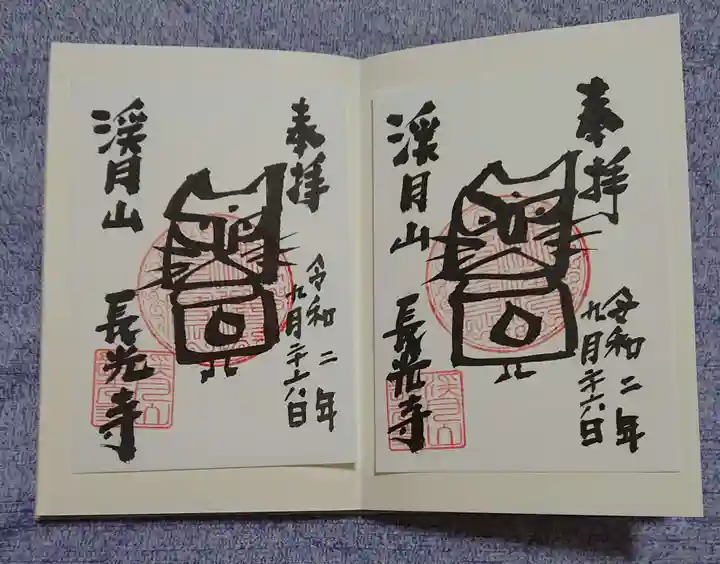 奉拝
令和二年
九月二十六日
溪月山
長光寺
奉拝
令和二年
九月二十六日
溪月山
長光寺